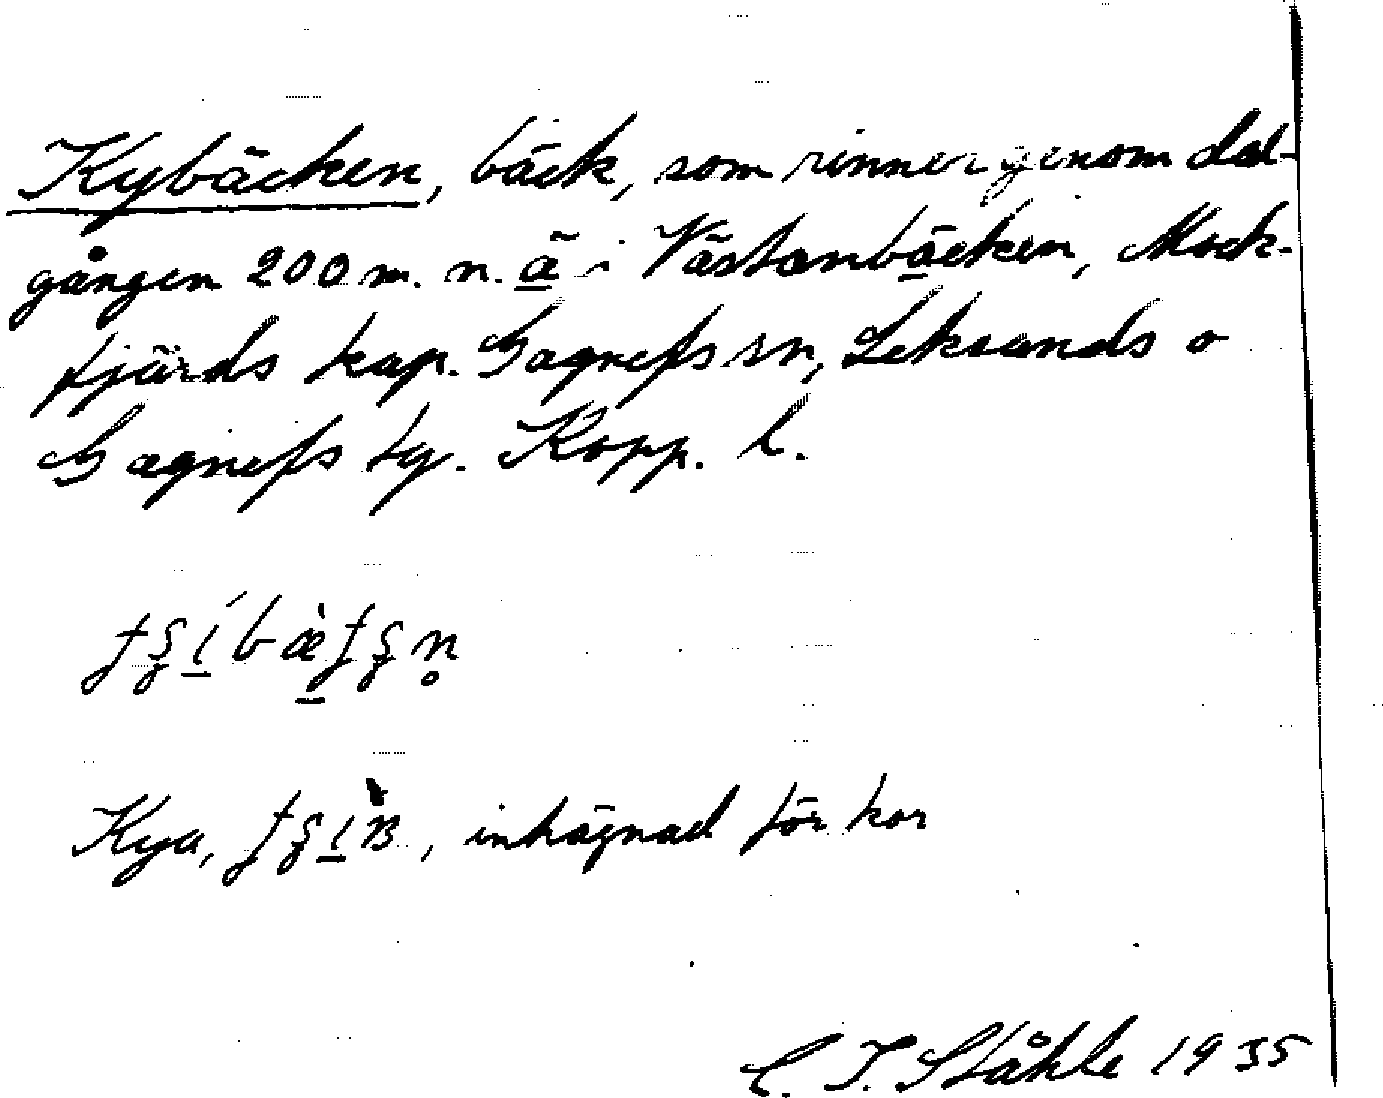 Kybäcken, bäck, som rinner genom dal-
gången 200 m. n. ä i Västanbäcken, Mock-
fjärds kap. Gagnefs sn, Leksands o
Gagnefs tg. Kopp. l.
Kya, , inhägnad för kor
C. I. Ståhle 1935